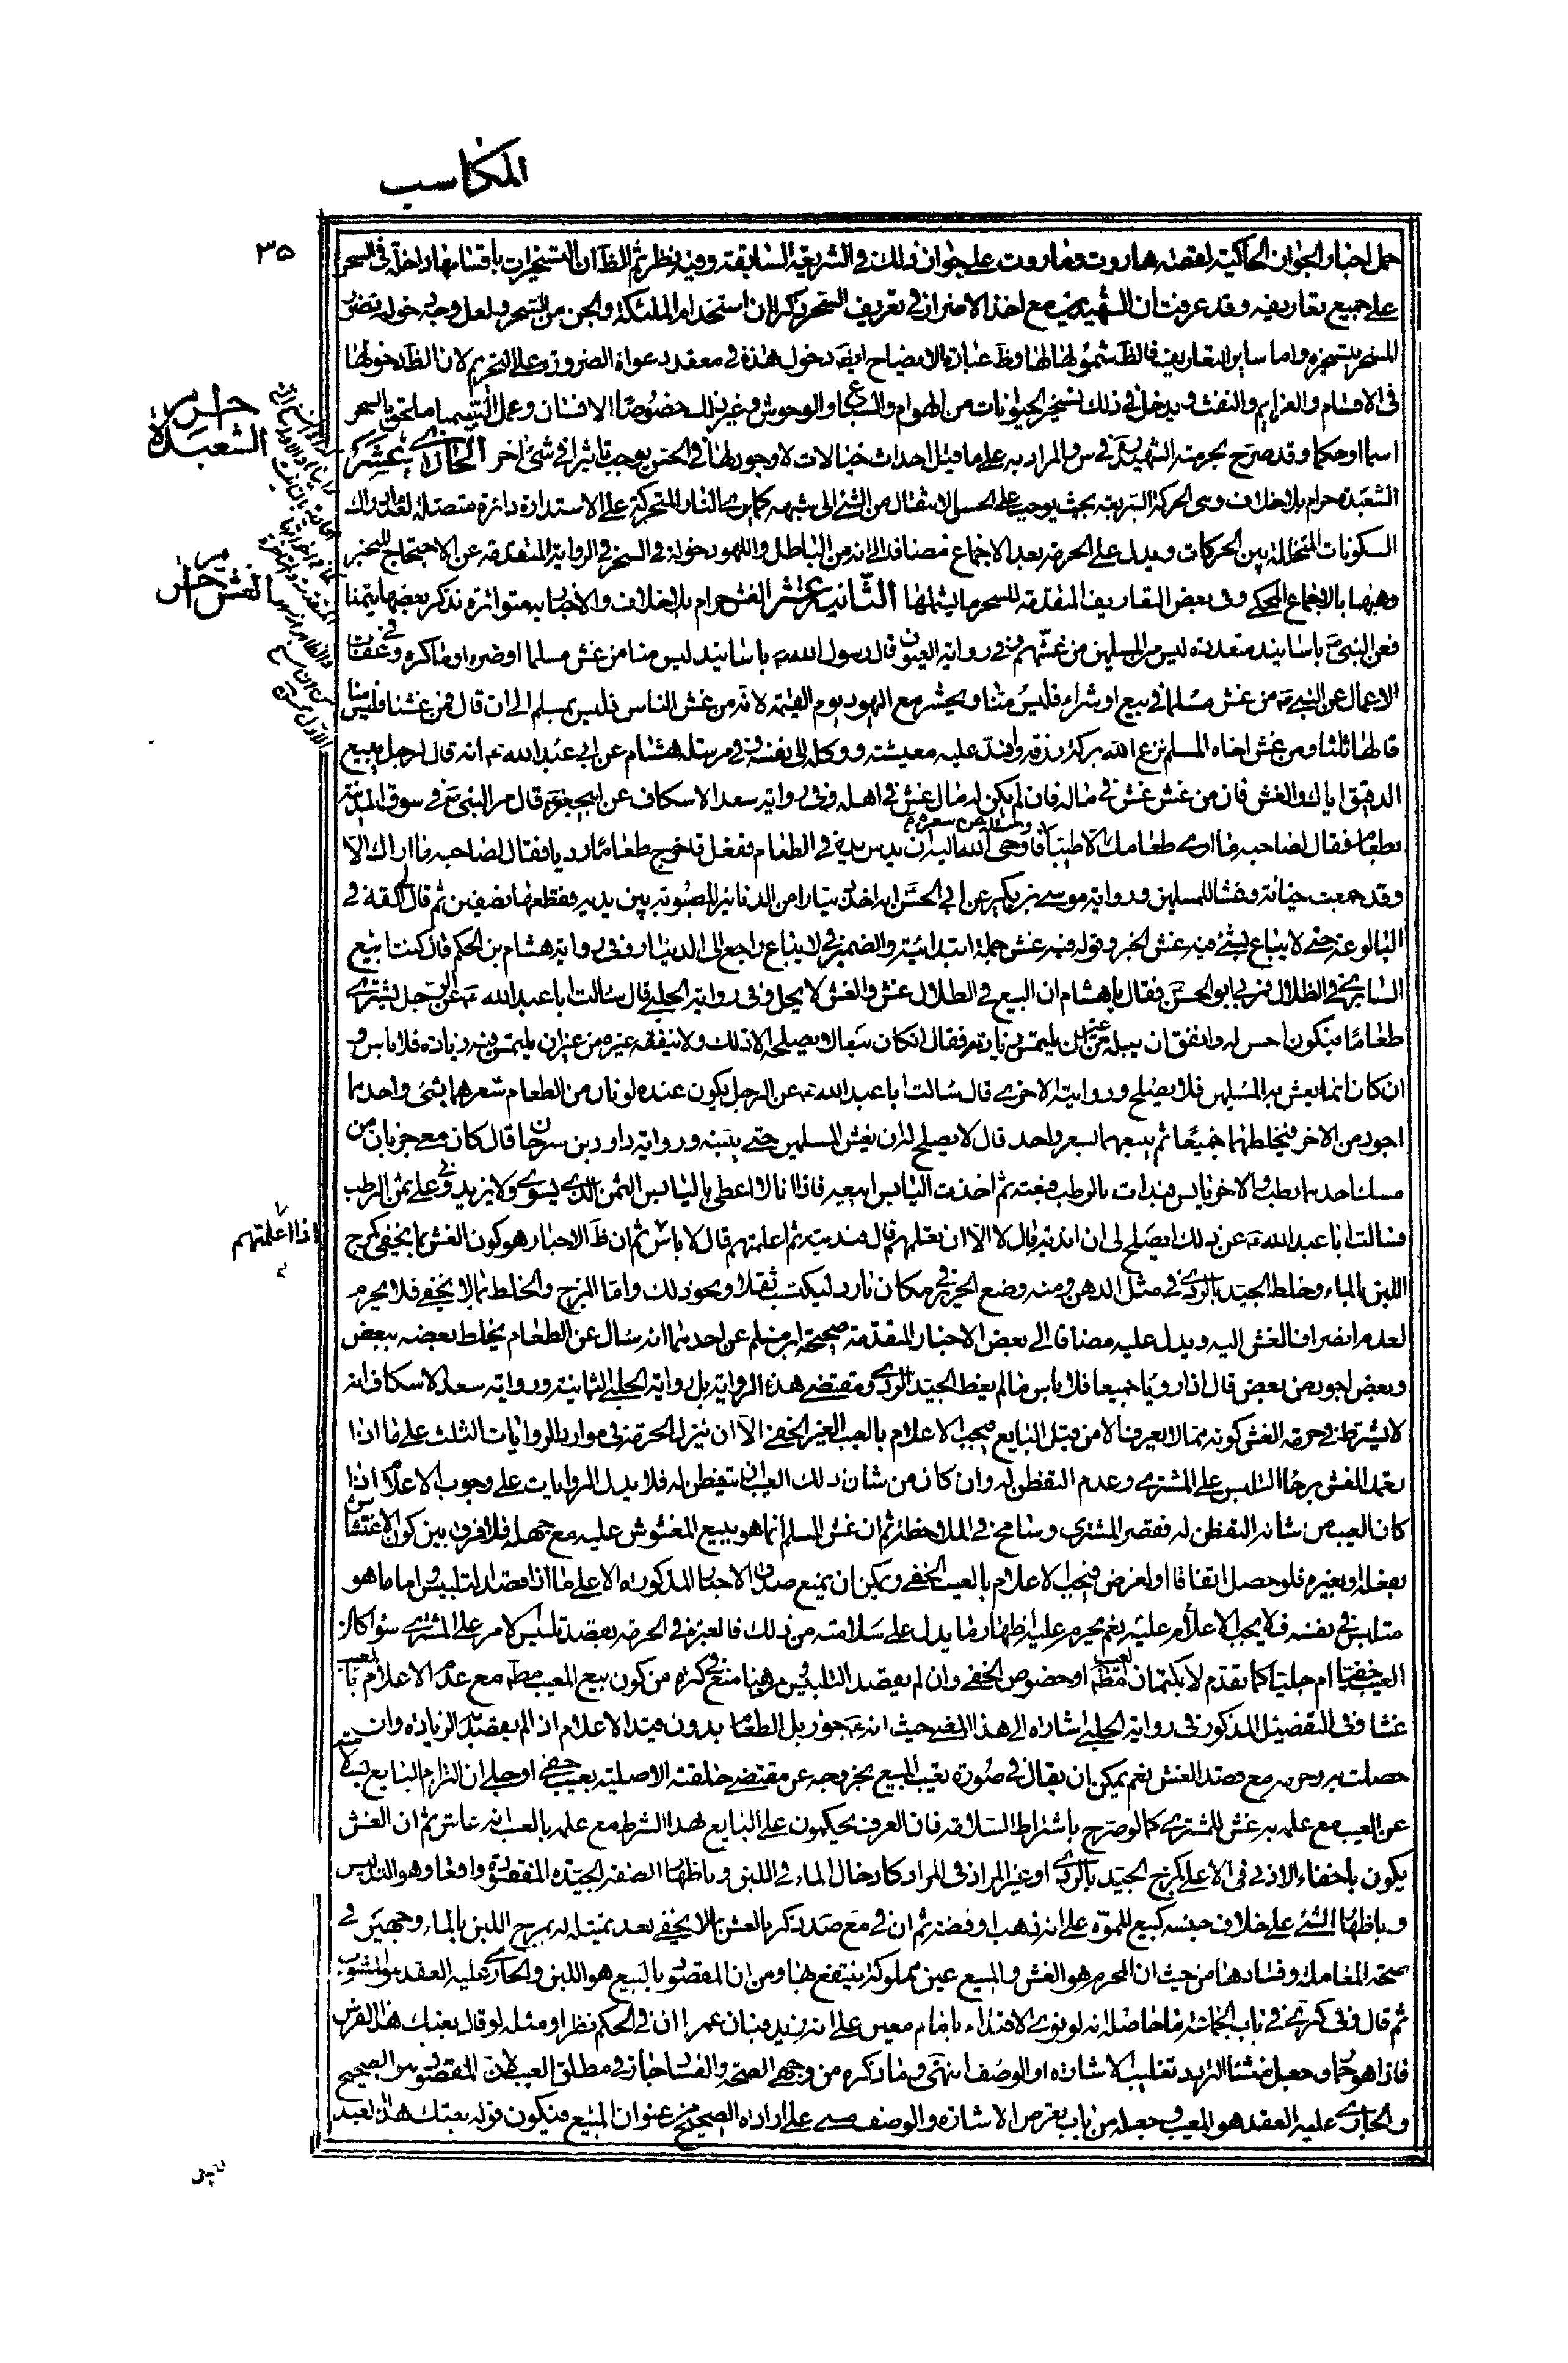 المكاسب
٣٥
حمل اخبار الجواز الحاكية لقصة هاروت وماروت على جواز ذلك فى الشريعة السابقة وفيه نظر ثم الظ ان التسخيرات باقسامها داخلة فى السحر
على جميع تعاريفه وقد عرفت ان الشهيدين مع اخذ الاضرار فى تعريف السحر ذكرا ان استخدام الملئكة والجن من السحر ولعل وجه دخوله تضرر
المسخر بتسخيره واما ساير التعاريف فالظ شمولها لها وظ عبارة الايضاح ايضا دخول هذه فى معقد دعواه الضرورة على التحريم لان الظ دخولها
فى الاقسام والعزايم والنفث ويدخل فى ذلك تسخير الحيوانات من الهوام والسباع والوحوش وغير ذلك خصوصا الانسان وعمل السيميا ملحق بالسحر
اسما او حكما وقد صرح بحرمته الشهيد فى س والمراد به على ما قيل احداث خيالات لا وجود لها فى الحس يوجب تاثيرا فى شئ اخر الحادي عشر
الشعبدة حرام بلا خلاف وهى الحركة السريعة بحيث يوجب على الحس الانتقال من الشئ الى شبهه كما يرى النار المتحركة على الاستدارة دائرة متصلة لعدم ادراك
السكونات المتخللة بين الحركات ويدل على الحرمة بعد الاجماع مضافا الى انه من الباطل واللهو دخوله فى السحر فى الرواية المتقدمة عن الاحتجاج المنجبر
وهنها بالاجماع المحكى وفى بعض التعاريف المتقدمة للسحر ما يشملها الثانية عشر الغش حرام بلا خلاف والاخبار به متواترة نذكر بعضها تيمنا
فعن النبى ص باسانيد متعددة ليس من المسلمين من غشهم وفى رواية العيون قال رسول الله ص باسانيد ليس منا من غش مسلما او ضره او ماكره وفى عقاب
الاعمال عن النبى ص من غش مسلما فى بيع او شراء فليس منا ويحشر مع اليهود يوم القيمة لانه من غش الناس فليس بمسلم الى ان قال ومن غشنا فليس منا
قالها ثلثا ومن غش اخاه المسلم نزع الله بركة رزقه وافسد عليه معيشته ووكله الى نفسه وفى مرسلة هشام عن ابى عبد الله ع انه قال لرجل يبيع
الدقيق اياك والغش فان من غش غش فى ماله فان لم يكن له مال غش فى اهله وفى رواية سعد الاسكاف عن ابيجعفر ع قال مر النبى ص فى سوق المدينة
بطعام فقال لصاحبه ما ارى طعامك الا طيبا وسئله عن سعره فاوحى الله اليه ان يدس يده فى الطعام ففعل فاخرج طعاما رديا فقال لصاحبه ما اراك الا
وقد جمعت خيانة وغشا للمسلمين ورواية موسى بن بكير عن ابى الحسن انه اخذ دينارا من الدنانير المصبوبة بين يديه فقطعها نصفين ثم قال القه فى
البالوعة حتى لا يباع بشئ فيه غش الخبر وقوله فيه غش جملة ابتدائية والضمير فى لا يباع راجع الى الدينار وفى رواية هشام بن الحكم قال كنت ابيع
السابرى فى الظلال فمر بى ابو الحسن فقال يا هشام ان البيع فى الظلال غش والغش لا يحل وفى رواية الحلبى قال سالت ابا عبد الله ع عن الرجل يشترى
طعاما فيكون احسن له وانفق ان يبله من غير ان يلتمس زيادته فقال ان كان بيعا لا يصلحه الا ذلك ولا ينفقه غيره من غير ان يلتمس فيه زيادة فلا باس و
ان كان انما يغش به المسلمين فلا يصلح ورواية الاخرى قال سالت ابا عبد الله ع عن الرجل يكون عنده لونان من الطعام سعرهما بشئ واحدهما
اجود من الاخر فيخلطهما جميعا ثم يبيعهما بسعر واحد قال لا يصلح له ان يغش المسلمين حتى يبينه ورواية داود بن سرحان قال كان معى جرابان من
مسك احدهما رطب والاخر يابس فبدات بالرطب فبعته ثم اخذت اليابس ابيعه فاذا انا لا اعطى باليابس الثمن الذى يسوى ولا يزيدونى على ثمن الرطب
فسالت ابا عبد الله ع عن ذلك ايصلح لى ان انديه قال لا الا ان تعلمهم قال فنديته ثم اعلمتهم قال لا باس ثم ان ظ الاخبار هو كون الغش بما يخفى كمزج
اللبن بالماء وخلط الجيد بالردى فى مثل الدهن ومنه وضع الحرير فى مكان بارد ليكتسب ثقلا ونحو ذلك واما المزج والخلط بما لا يخفى فلا يحرم
لعدم انصراف الغش اليه ويدل عليه مضافا الى بعض الاخبار المتقدمة صحيحة ابن مسلم عن احدهما انه سال عن الطعام يخلط بعضه ببعض
وبعض اجود من بعض قال اذا رؤيا جميعا فلا باس ما لم يغط الجيد الردى ومقتضى هذه الرواية بل رواية الحلبى الثانية ورواية سعد الاسكاف انه
لا يشترط فى حرمة الغش كونه مما لا يعرف الا من قبل البايع فيجب الاعلام بالعيب الغير الخفى الا ان ننزل الحرمة فى موارد الروايات الثلث على ما اذا
تعمد الغش برجاء التلبس على المشترى وعدم التفطن له وان كان من شان ذلك العيب ان يتفطن له فلا يدل الروايات على وجوب الاعلام اذا
كان العيب من شانه التفطن له فقصر المشترى وسامح فى الملاحظة ثم ان غش المسلم انما هو ببيع المغشوش عليه مع جهله فلا فرق بين كون الاغتشاش
بفعله وبغيره فلو حصل اتفاقا او لغرض فيجب الاعلام بالعيب الخفى ويمكن ان يمنع صدق الاخبار المذكورة الا على ما اذا قصد التلبيس واما ما هو
متلبس فى نفسه فلا يجب الاعلام عليه نعم يحرم عليه اظهار ما يدل على سلامته من ذلك فالعبرة فى الحرمة بقصد تلبيس الامر على المشترى سواء كان
العيب خفيا ام جليا كما تقدم لا بكتمان العيب مطلقا او خصوص الخفى وان لم يقصد التلبيس ومن هنا منع فى كره من كون بيع المعيب مطلقا مع عدم الاعلام بالعيب
غشا وفى التفصيل المذكور فى رواية الحلبى اشارة الى هذا المعنى حيث انه ع جوز بل الطعام بدون قيد الاعلام اذا لم يقصد به الزيادة وان
حصلت به وحرمه مع قصد الغش نعم يمكن ان يقال فى صورة تعيب المبيع بخروجه عن مقتضى خلقته الاصلية بعيب خفى او جلى ان التزام البايع بسلامته
عن العيب مع علمه به غش للمشترى كما لو صرح باشتراط السلامة فان العرف يحكمون على البايع بهذا الشرط مع علمه بالعيب انه غاش ثم ان الغش
يكون باخفاء الادنى فى الاعلى كمزج الجيد بالردى او غير المراد فى المراد كادخال الماء فى اللبن وباظهار الصفة الجيدة المفقودة واقعا وهو التدليس
وباظهار الشئ على خلاف جنسه كبيع المموه على انه ذهب او فضة ثم ان فى مع صد ذكر بالغش بما لا يخفى بعد تمثيله له بمزج اللبن بالماء وجهين فى
صحة المعاملة وفسادها من حيث ان المحرم هو الغش والمبيع عين مملوكة ينتفع بها ومن ان المقصود بالبيع هو اللبن والجارى عليه العقد هو المشوب
ثم قال وفى كرى فى باب الجماعة ما حاصله انه لو نوى الاقتداء بامام معين على انه زيد فبان عمرا ان فى الحكم نظرا ومثله لو قال بعتك هذا الفرس
فاذا هو حمار وجعل منشا التردد تغليب الاشارة او الوصف انتهى وما ذكره من وجهى الصحة والفساد جار فى مطلق العيب لان المقصود هو الصحيح
والجارى عليه العقد هو المعيب وجعله من باب تعارض الاشارة والوصف مبنى على ارادة الصحيح من عنوان المبيع فيكون قوله بعتك هذا العبد
حرام
الشعبدة
الغش حرام
اذا اعلمتهم